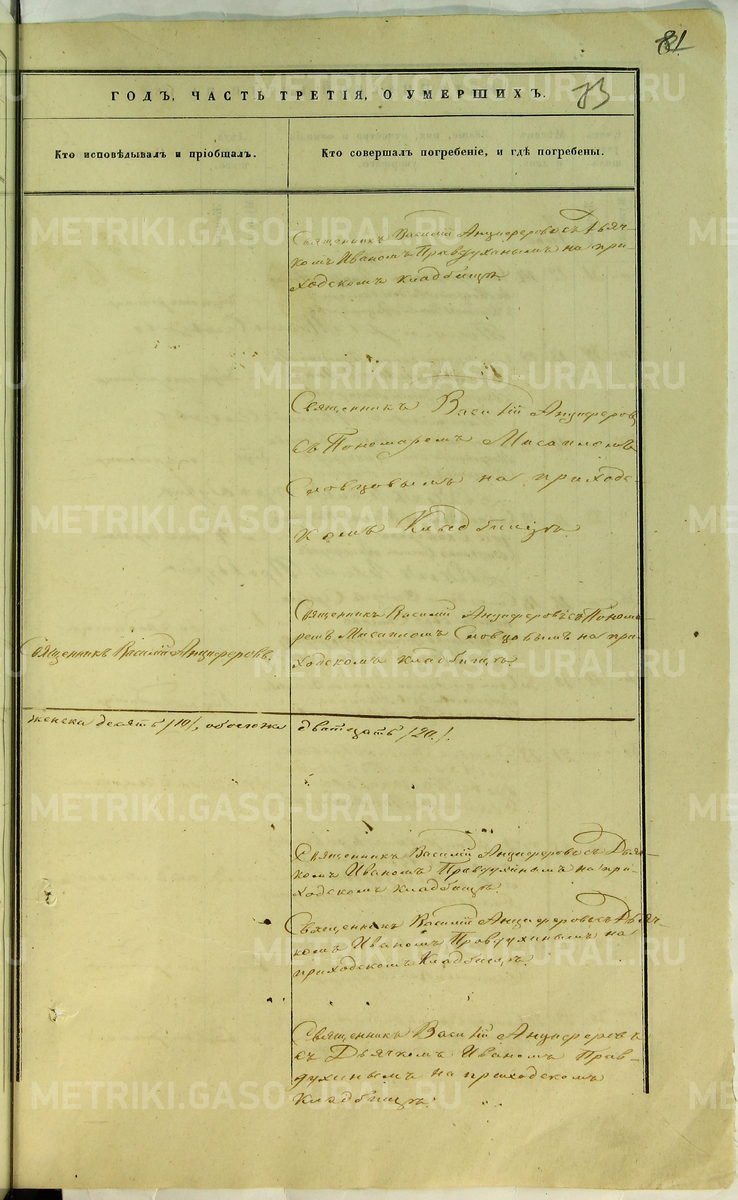 81
ГОДЪ, ЧАСТЬ ТРЕТІЯ, О УМЕРШИХЪ.
73
Кто исповѣдывалъ и пріобщалъ.
Кто совершалъ погребеніе, и гдѣ погребены.
Священникъ Василій Анциферовъ съ Дьяч-
комъ Иваномъ Правдухинымъ на при-
ходскомъ кладбищѣ.
Священникъ Василій Анциферовъ
съ Пономаремъ Мисаиломъ
Словцовымъ на приходс-
комъ Кладбищѣ.
Священникъ Василій Анциферовъ съ Понома-
ремъ Мисаиломъ Словцовымъ на при-
ходскомъ кладбищѣ
Священникъ Василій Анциферовъ.
женска десять /10/, обоего пола двадцать /20/.
Священникъ Василій Анциферовъ съ Дьяч-
комъ Иваномъ Правдухинымъ на при-
ходскомъ кладбищѣ.
Священникъ Василій Анциферовъ съ Дьяч-
комъ Иваномъ Правдухинымъ на
приходскомъ Кладбищѣ.
Священникъ Василій Анциферовъ
съ Дьячкомъ Иваномъ Прав-
духинымъ на приходскомъ
кладбищѣ.
METRIKI.GASO-URAL.RU